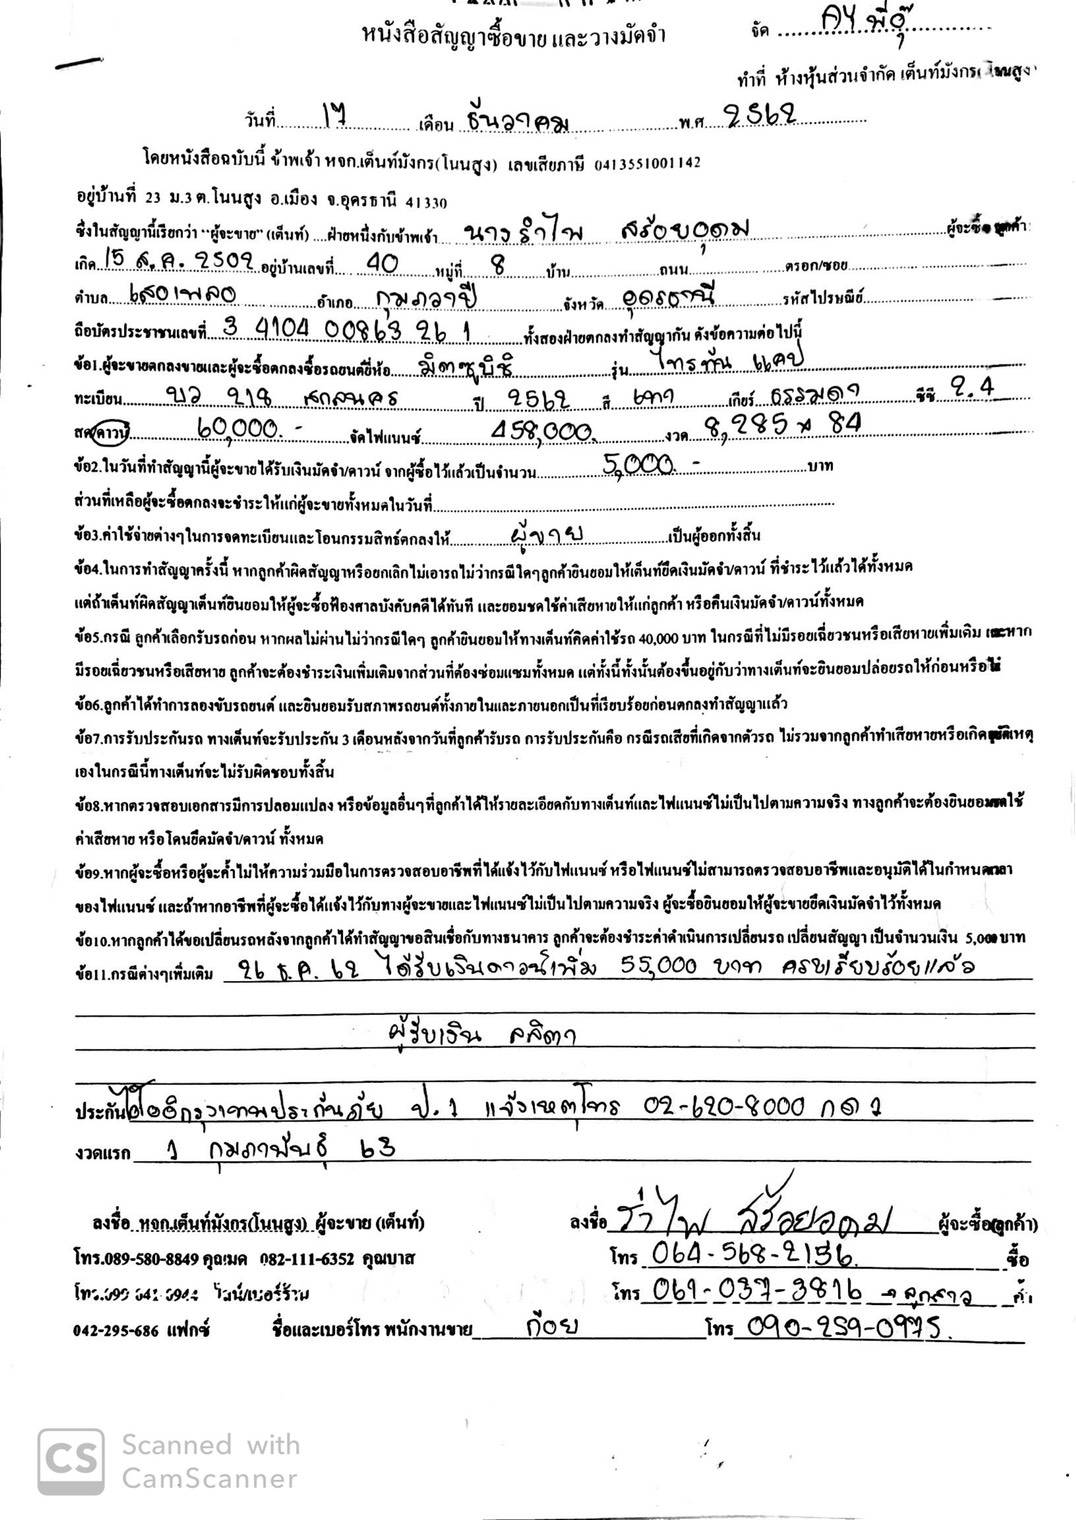 หนังสือสัญญาซื้อขาย และวางมัดจำ
จัด AY พี่อุ๊
ทำที่ ห้างหุ้นส่วนจำกัด เต็นท์มังกร โนนสูง
วันที่ 17 เดือน ธันวาคม พ.ศ 2562
โดยหนังสือฉบับนี้ ข้าพเจ้า หจก.เต็นท์มังกร(โนนสูง) เลขเสียภาษี 0413551001142
อยู่บ้านที่ 23 ม.3 ต.โนนสูง อ.เมือง จ.อุดรธานี 41330
ซึ่งในสัญญานี้เรียกว่า "ผู้จะขาย" (เต็นท์) ....ฝ่ายหนึ่งกับข้าพเจ้า นางรำไพ สร้อยอุดม ผู้จะซื้อ ลูกค้า
เกิด 15 ส.ค. 2502 อยู่บ้านเลขที่ 40 หมู่ที่ 8 บ้าน ถนน ตรอก/ซอย
ตำบล เสอเพลอ อำเภอ กุมภวาปี จังหวัด อุดรธานี รหัสไปรษณีย์
ถือบัตรประชาชนเลขที่ 3 4104 00863 26 1 ทั้งสองฝ่ายตกลงทำสัญญากัน ดังข้อความต่อไปนี้
ข้อ1.ผู้จะขายตกลงขายและผู้จะซื้อตกลงซื้อรถยนต์ยี่ห้อ มิตซูบิชิ รุ่น ไทรทัน แคป
ทะเบียน บว 218 สกลนคร ปี 2562 สี เทา เกียร์ ธรรมดา ซีซี 2.4
สด/ดาวน์ 60,000.- จัดไฟแนนซ์ 458,000. งวด 8,285 x 84
ข้อ2.ในวันที่ทำสัญญานี้ผู้จะขายได้รับเงินมัดจำ/ดาวน์ จากผู้ซื้อไว้แล้วเป็นจำนวน 5,000.- บาท
ส่วนที่เหลือผู้จะซื้อตกลงจะชำระให้แก่ผู้จะขายทั้งหมดในวันที่
ข้อ3.ค่าใช้จ่ายต่างๆในการจดทะเบียนและโอนกรรมสิทธ์ตกลงให้ ผู้ขาย เป็นผู้ออกทั้งสิ้น
ข้อ4.ในการทำสัญญาครั้งนี้ หากลูกค้าผิดสัญญาหรือยกเลิกไม่เอารถไม่ว่ากรณีใดๆลูกค้ายินยอมให้เต็นท์ยึดเงินมัดจำ/ดาวน์ ที่ชำระไว้แล้วได้ทั้งหมด
แต่ถ้าเต็นท์ผิดสัญญาเต็นท์ยินยอมให้ผู้จะซื้อฟ้องศาลบังคับคดีได้ทันที และยอมชดใช้ค่าเสียหายให้แก่ลูกค้า หรือคืนเงินมัดจำ/ดาวน์ทั้งหมด
ข้อ5.กรณี ลูกค้าเลือกรับรถก่อน หากผลไม่ผ่านไม่ว่ากรณีใดๆ ลูกค้ายินยอมให้ทางเต็นท์คิดค่าใช้รถ 40,000 บาท ในกรณีที่ไม่มีรอยเฉี่ยวชนหรือเสียหายเพิ่มเติม และหาก
มีรอยเฉี่ยวชนหรือเสียหาย ลูกค้าจะต้องชำระเงินเพิ่มเติมจากส่วนที่ต้องซ่อมแซมทั้งหมด แต่ทั้งนี้ทั้งนั้นต้องขึ้นอยู่กับว่าทางเต็นท์จะยินยอมปล่อยรถให้ก่อนหรือไม่
ข้อ6.ลูกค้าได้ทำการลองขับรถยนต์ และยินยอมรับสภาพรถยนต์ทั้งภายในและภายนอกเป็นที่เรียบร้อยก่อนตกลงทำสัญญาแล้ว
ข้อ7.การรับประกันรถ ทางเต็นท์จะรับประกัน 3 เดือนหลังจากวันที่ลูกค้ารับรถ การรับประกันคือ กรณีรถเสียที่เกิดจากตัวรถ ไม่รวมจากลูกค้าทำเสียหายหรือเกิดอุบัติเหตุ
เองในกรณีนี้ทางเต็นท์จะไม่รับผิดชอบทั้งสิ้น
ข้อ8.หากตรวจสอบเอกสารมีการปลอมแปลง หรือข้อมูลอื่นๆที่ลูกค้าได้ให้รายละเอียดกับทางเต็นท์และไฟแนนซ์ไม่เป็นไปตามความจริง ทางลูกค้าจะต้องยินยอมชดใช้
ค่าเสียหาย หรือโดนยึดมัดจำ/ดาวน์ ทั้งหมด
ข้อ9.หากผู้จะซื้อหรือผู้จะค้ำไม่ให้ความร่วมมือในการตรวจสอบอาชีพที่ได้แจ้งไว้กับไฟแนนซ์ หรือไฟแนนซ์ไม่สามารถตรวจสอบอาชีพและอนุมัติได้ในกำหนดเวลา
ของไฟแนนซ์ และถ้าหากอาชีพที่ผู้จะซื้อได้แจ้งไว้กับทางผู้จะขายและไฟแนนซ์ไม่เป็นไปตามความจริง ผู้จะซื้อยินยอมให้ผู้จะขายยึดเงินมัดจำไว้ทั้งหมด
ข้อ10.หากลูกค้าได้ขอเปลี่ยนรถหลังจากลูกค้าได้ทำสัญญาขอสินเชื่อกับทางธนาคาร ลูกค้าจะต้องชำระค่าดำเนินการเปลี่ยนรถ เปลี่ยนสัญญา เป็นจำนวนเงิน 5,000 บาท
ข้อ11.กรณีต่างๆเพิ่มเติม 26 ธ.ค. 62 ได้รับเงินดาวน์เพิ่ม 55,000 บาท ครบเรียบร้อยแล้ว
ผู้รับเงิน ลลิตา
ประกัน กรุงเทพประกันภัย ป.1 แจ้งเหตุโทร 02-620-8000 กด 1
งวดแรก 1 กุมภาพันธ์ 63
ลงชื่อ หจก.เต็นท์มังกร(โนนสูง) ผู้จะขาย (เต็นท์) ลงชื่อ รำไพ สร้อยอุดม ผู้จะซื้อ(ลูกค้า)
โทร.089-580-8849 คุณมด 082-111-6352 คุณบาส โทร 064-568-2156. ซื้อ
โทร.099 641 6944 ไลน์/เบอร์ร้าน โทร 061-037-3816 → ลูกสาว ค้ำ
042-295-686 แฟกซ์ ชื่อและเบอร์โทร พนักงานขาย ก้อย โทร 090-259-0975.
CS Scanned with
CamScanner